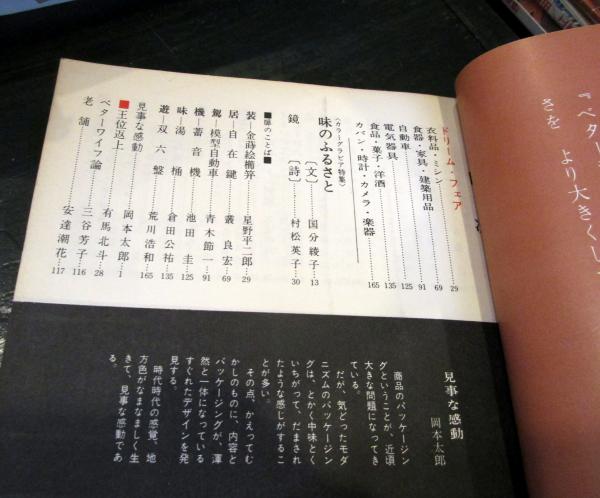 『ベター
さを より大きくし
ドリーム・フェア
衣料品・ミシン……29
食器・家具・建築用品……69
自動車……91
電気器具……125
食品・菓子・洋酒……135
カバン・時計・カメラ・楽器……165
〈カラーグラビア特集〉
味のふるさと〔文〕国分綾子…13
鏡〔詩〕村松英子…30
■扉のことば■
装―金蒔絵櫛笄……星野平二郎…29
居―自在鍵……叢良宏…69
駕―模型自動車……青木節一…91
機―蓄音機……池田圭…125
味―湯桶……倉田公祐…135
遊―双六盤……荒川浩和…165
見事な感動……岡本太郎…1
■王位返上……有馬北斗…28
ベターワイフ論……三谷芳子…116
老舗……安達潮花…117
見事な感動
岡本太郎
商品のパッケージン
グということが、近頃
大きな問題になってき
ている。
だが、気どったモダ
ニズムのパッケージン
グは、とかく中味とく
いちがって、だまされ
たような感じがするこ
とが多い。
その点、かえってむ
かしのものに、内容と
パッケージングが、渾
然と一体になっている
すぐれたデザインを発
見する。
時代時代の感覚、地
方色がなまなましく生
きて、見事な感動であ
る。